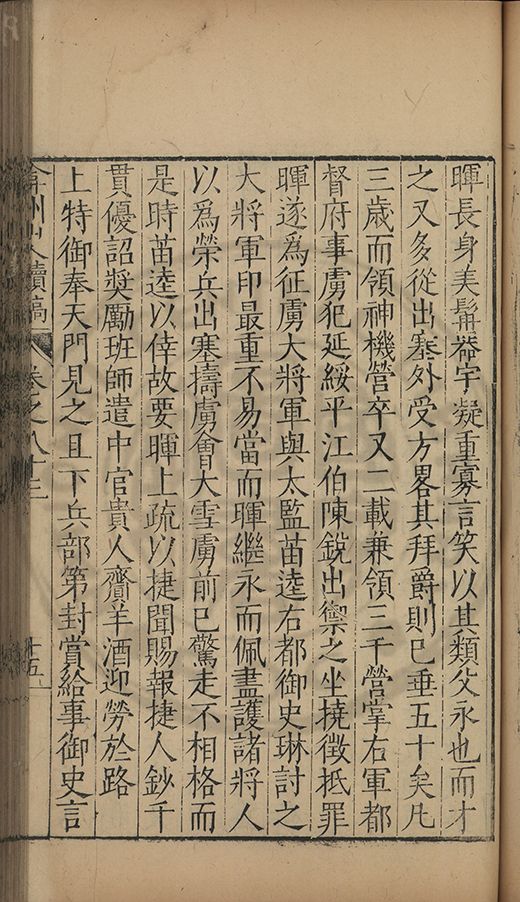 暉長身美鬚䯻宇凝重寡言笑以其類父永也而才
之又多從出塞外受方畧其拜爵則已垂五十矣凡
三歳而領神機營卒又二載兼領三千營掌右軍都
督府事虜犯延綏平江伯陳銳出禦之坐撓徵抵罪
暉遂爲征虜大將軍與太監苗逵右都御史琳討之
大將軍印最重不易當而暉繼永而佩盡護諸將人
以爲榮兵出塞擣虜會大雪虜前已驚走不相格而
是時苗逵以倖故要暉上疏以捷聞賜報捷人鈔千
貫優詔奬勵班師遣中官貴人齎羊酒迎勞於路
上特御奉天門見之且下兵部第封賞給事御史言
弇州山人續稿
卷之八十三
十五